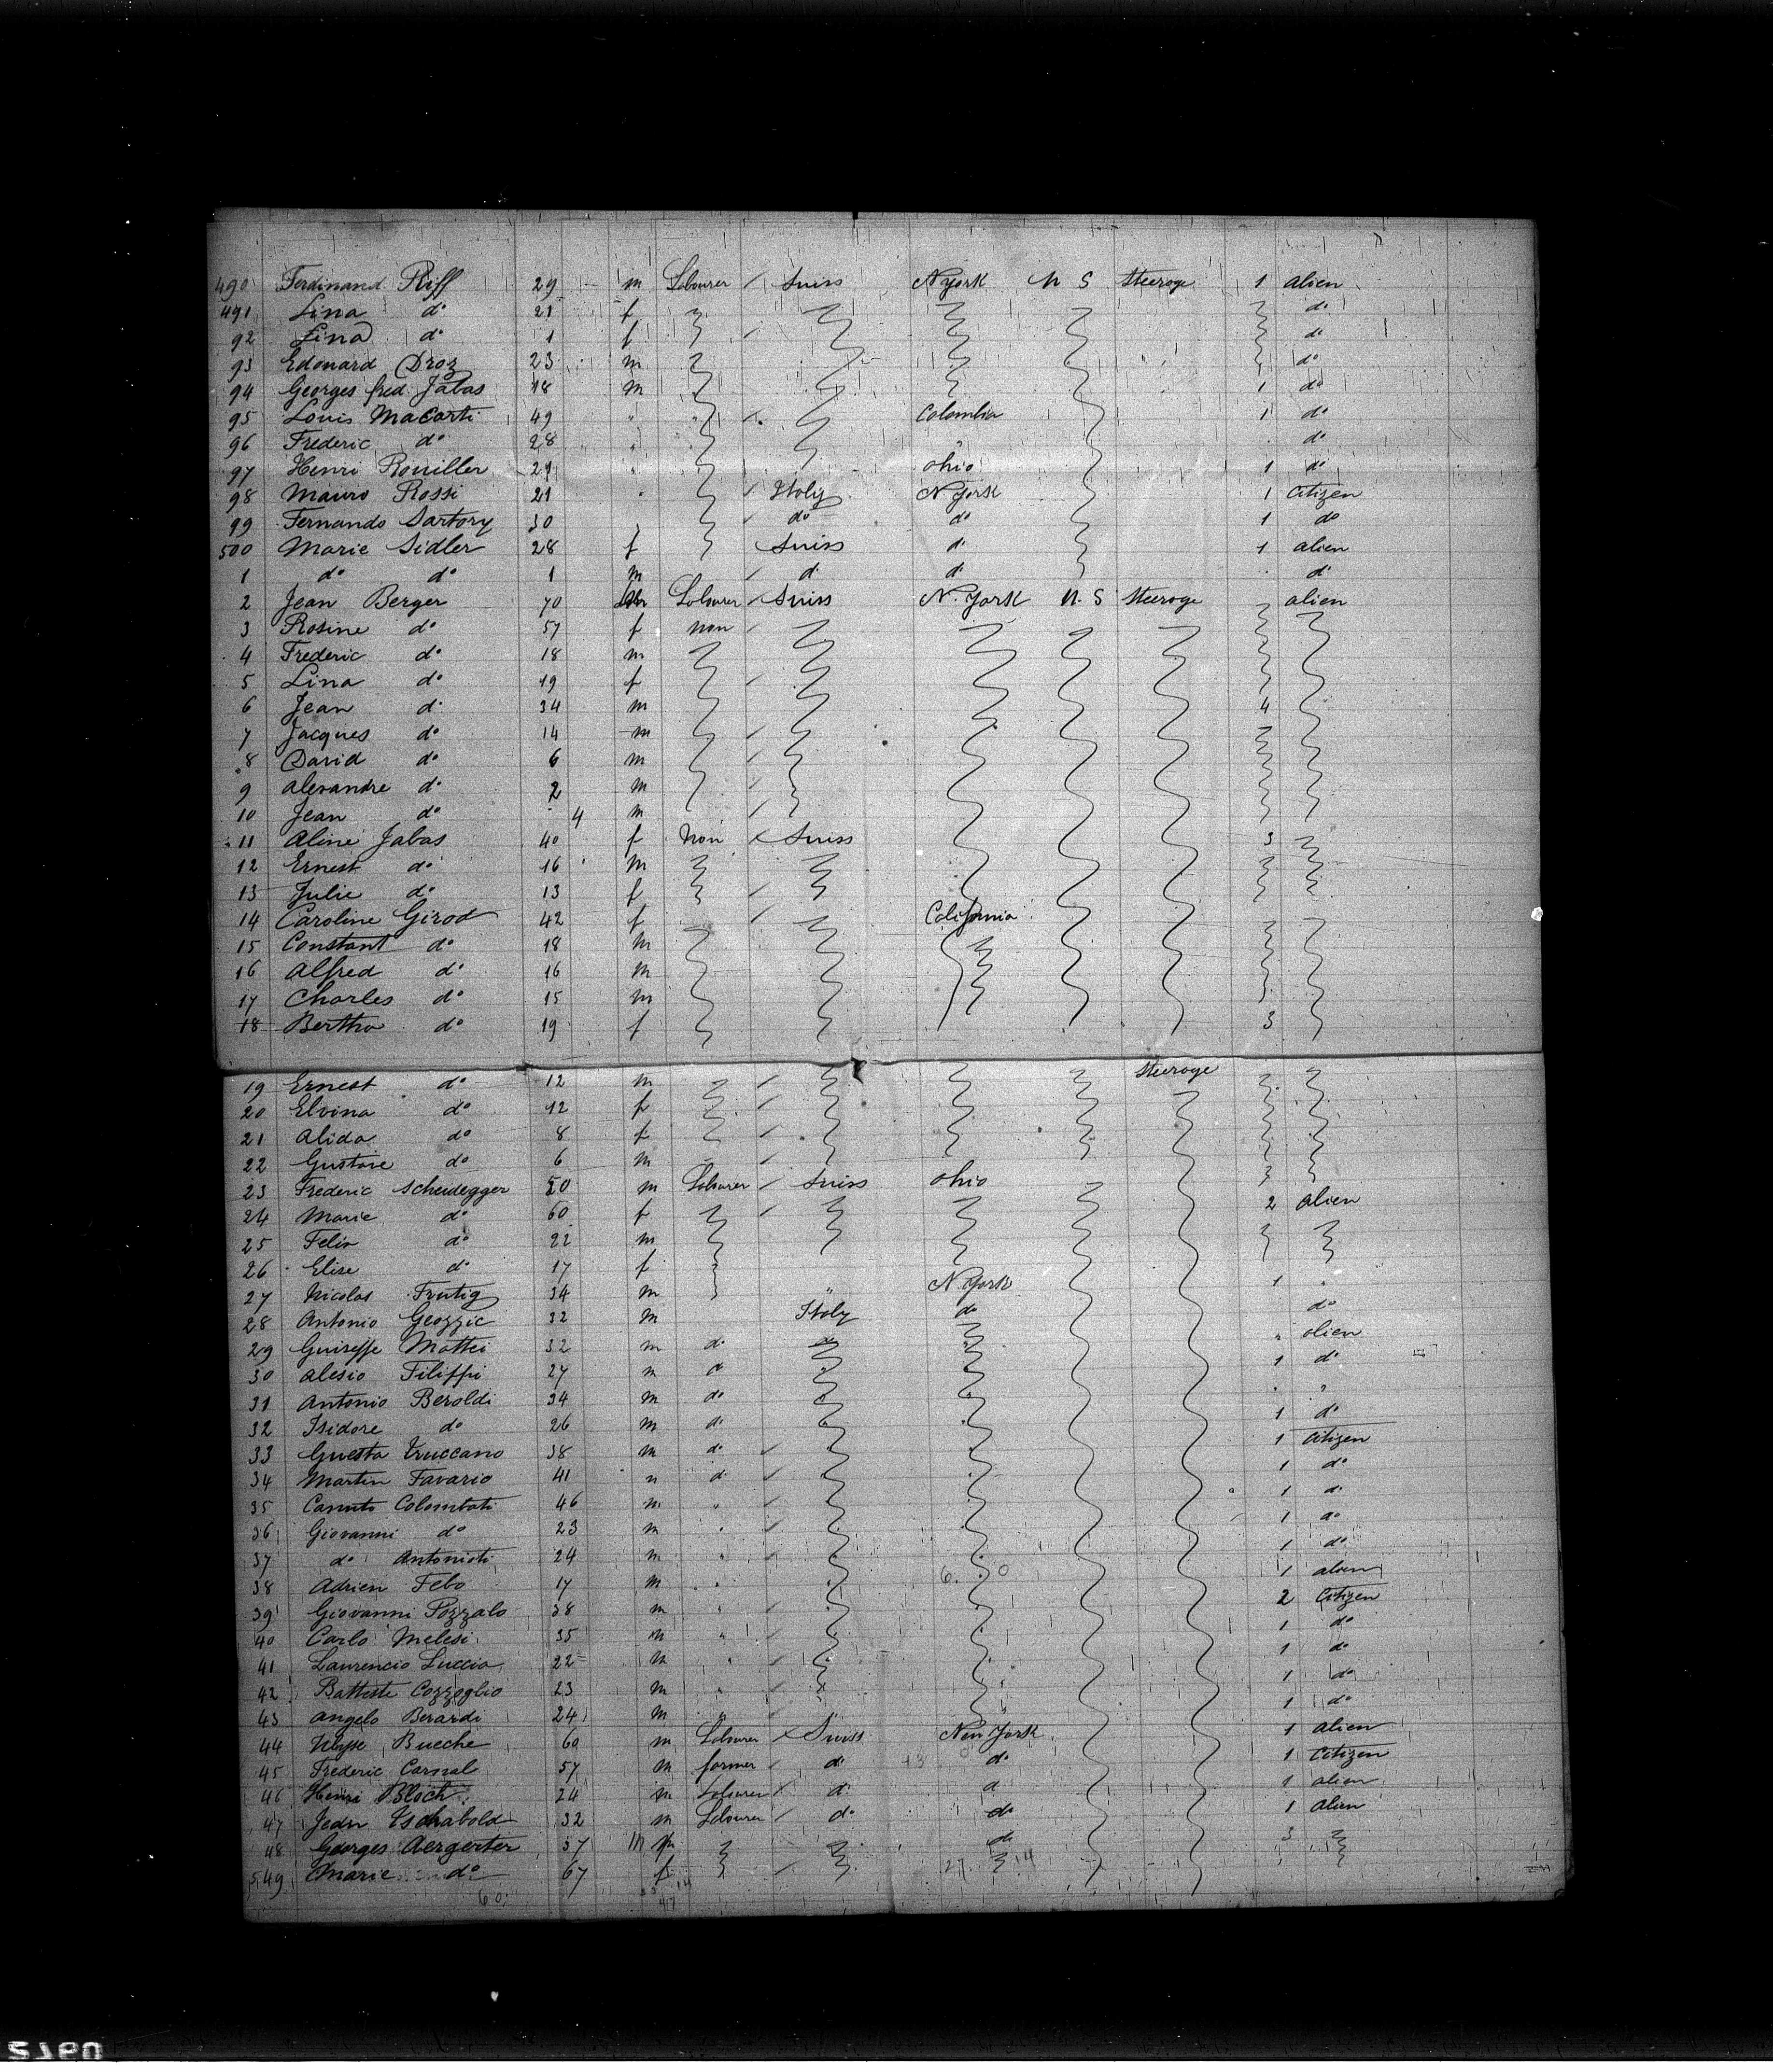 490 Ferdinand Riff 29 m Labourer Suiss N york U S Steerage 1 alien
491 Lina do 21 f do
92 Lina do 1 f do
93 Edouard Droz 23 m do
94 Georges fred. Jabas 18 m 1 do
95 Louis Macorti 49 " " Colombia 1 do
96 Frederic do 28 " " do
97 Henri Rouiller 29 " ohio 1 do
98 Mauro Rossi 21 " Italy N York 1 Citizen
99 Fernando Sartory 30 do do 1 do
500 Marie Sidler 28 f Suiss d. 1 alien
1 do do 1 m d. d. d.
2 Jean Berger 70 m Labourer Suiss N. York U. S Steerage alien
3 Rosine do 57 f non
4 Frederic do 18 m
5 Lina do 19 f
6 Jean d. 34 m 4
7 Jacques do 14 m
8 David do 6 m
9 alexandre do 2 m
10 Jean do 4 m
11 Aline Jabas 40 f Non Suiss 3
12 Ernest do 16 m
13 Julie do 13 f
14 Caroline Girod 42 f California
15 Constant do 18 m
16 Alfred do 16 m
17 Charles do 15 m
18 Bertha do 19 f 3
19 Ernest do 12 m Steerage
20 Elvina do 12 f
21 alida do 8 f
22 Gustave do 6 m
23 Frederic Scheidegger 50 m Labourer Suiss Ohio
24 Marie do 60 f 2 alien
25 Felix do 22 m
26 Elise do 17 f
27 Nicolas Frutig 34 m " N. York 1 "
28 Antonio Geozzic 32 m Italy do do
29 Guiseffe Mattei 32 m do do " alien
30 alesio Filippi 27 m d 1 do
31 Antonio Beroldi 34 m do " "
32 Isidore do 26 m d. 1 do
33 Guesta Truccano 38 m d. 1 Citizen
34 Martin Favario 41 m d. 1 do
35 Canuto Colombati 46 m " 1 do
36 Giovanni do 23 m " 1 do
37 do Antonioti 24 m " 1 do
38 Adrien Febo 17 m " 1 alien
39 Giovanni Pozzalo 38 m " 2 Citizen
40 Carlo Melesi 35 m " 1 do
41 Laurencio Luccia 22 m " 1 do
42 Battiste Cozzoglio 23 m " 1 do
43 angelo Berardi 24 m " 1 do
44 Ulyse Bueche 60 m Labourer Suiss New York 1 alien
45 Frederic Carnal 57 m farmer d. do 1 Citizen
46 Henri Bloch 24 m Labourer d. d 1 alien
47 Jean Tschabold 32 m Labourer do do 1 Alien
48 Georges Aergerter 37 m do 3
549 Marie do 67 f 27 14
60